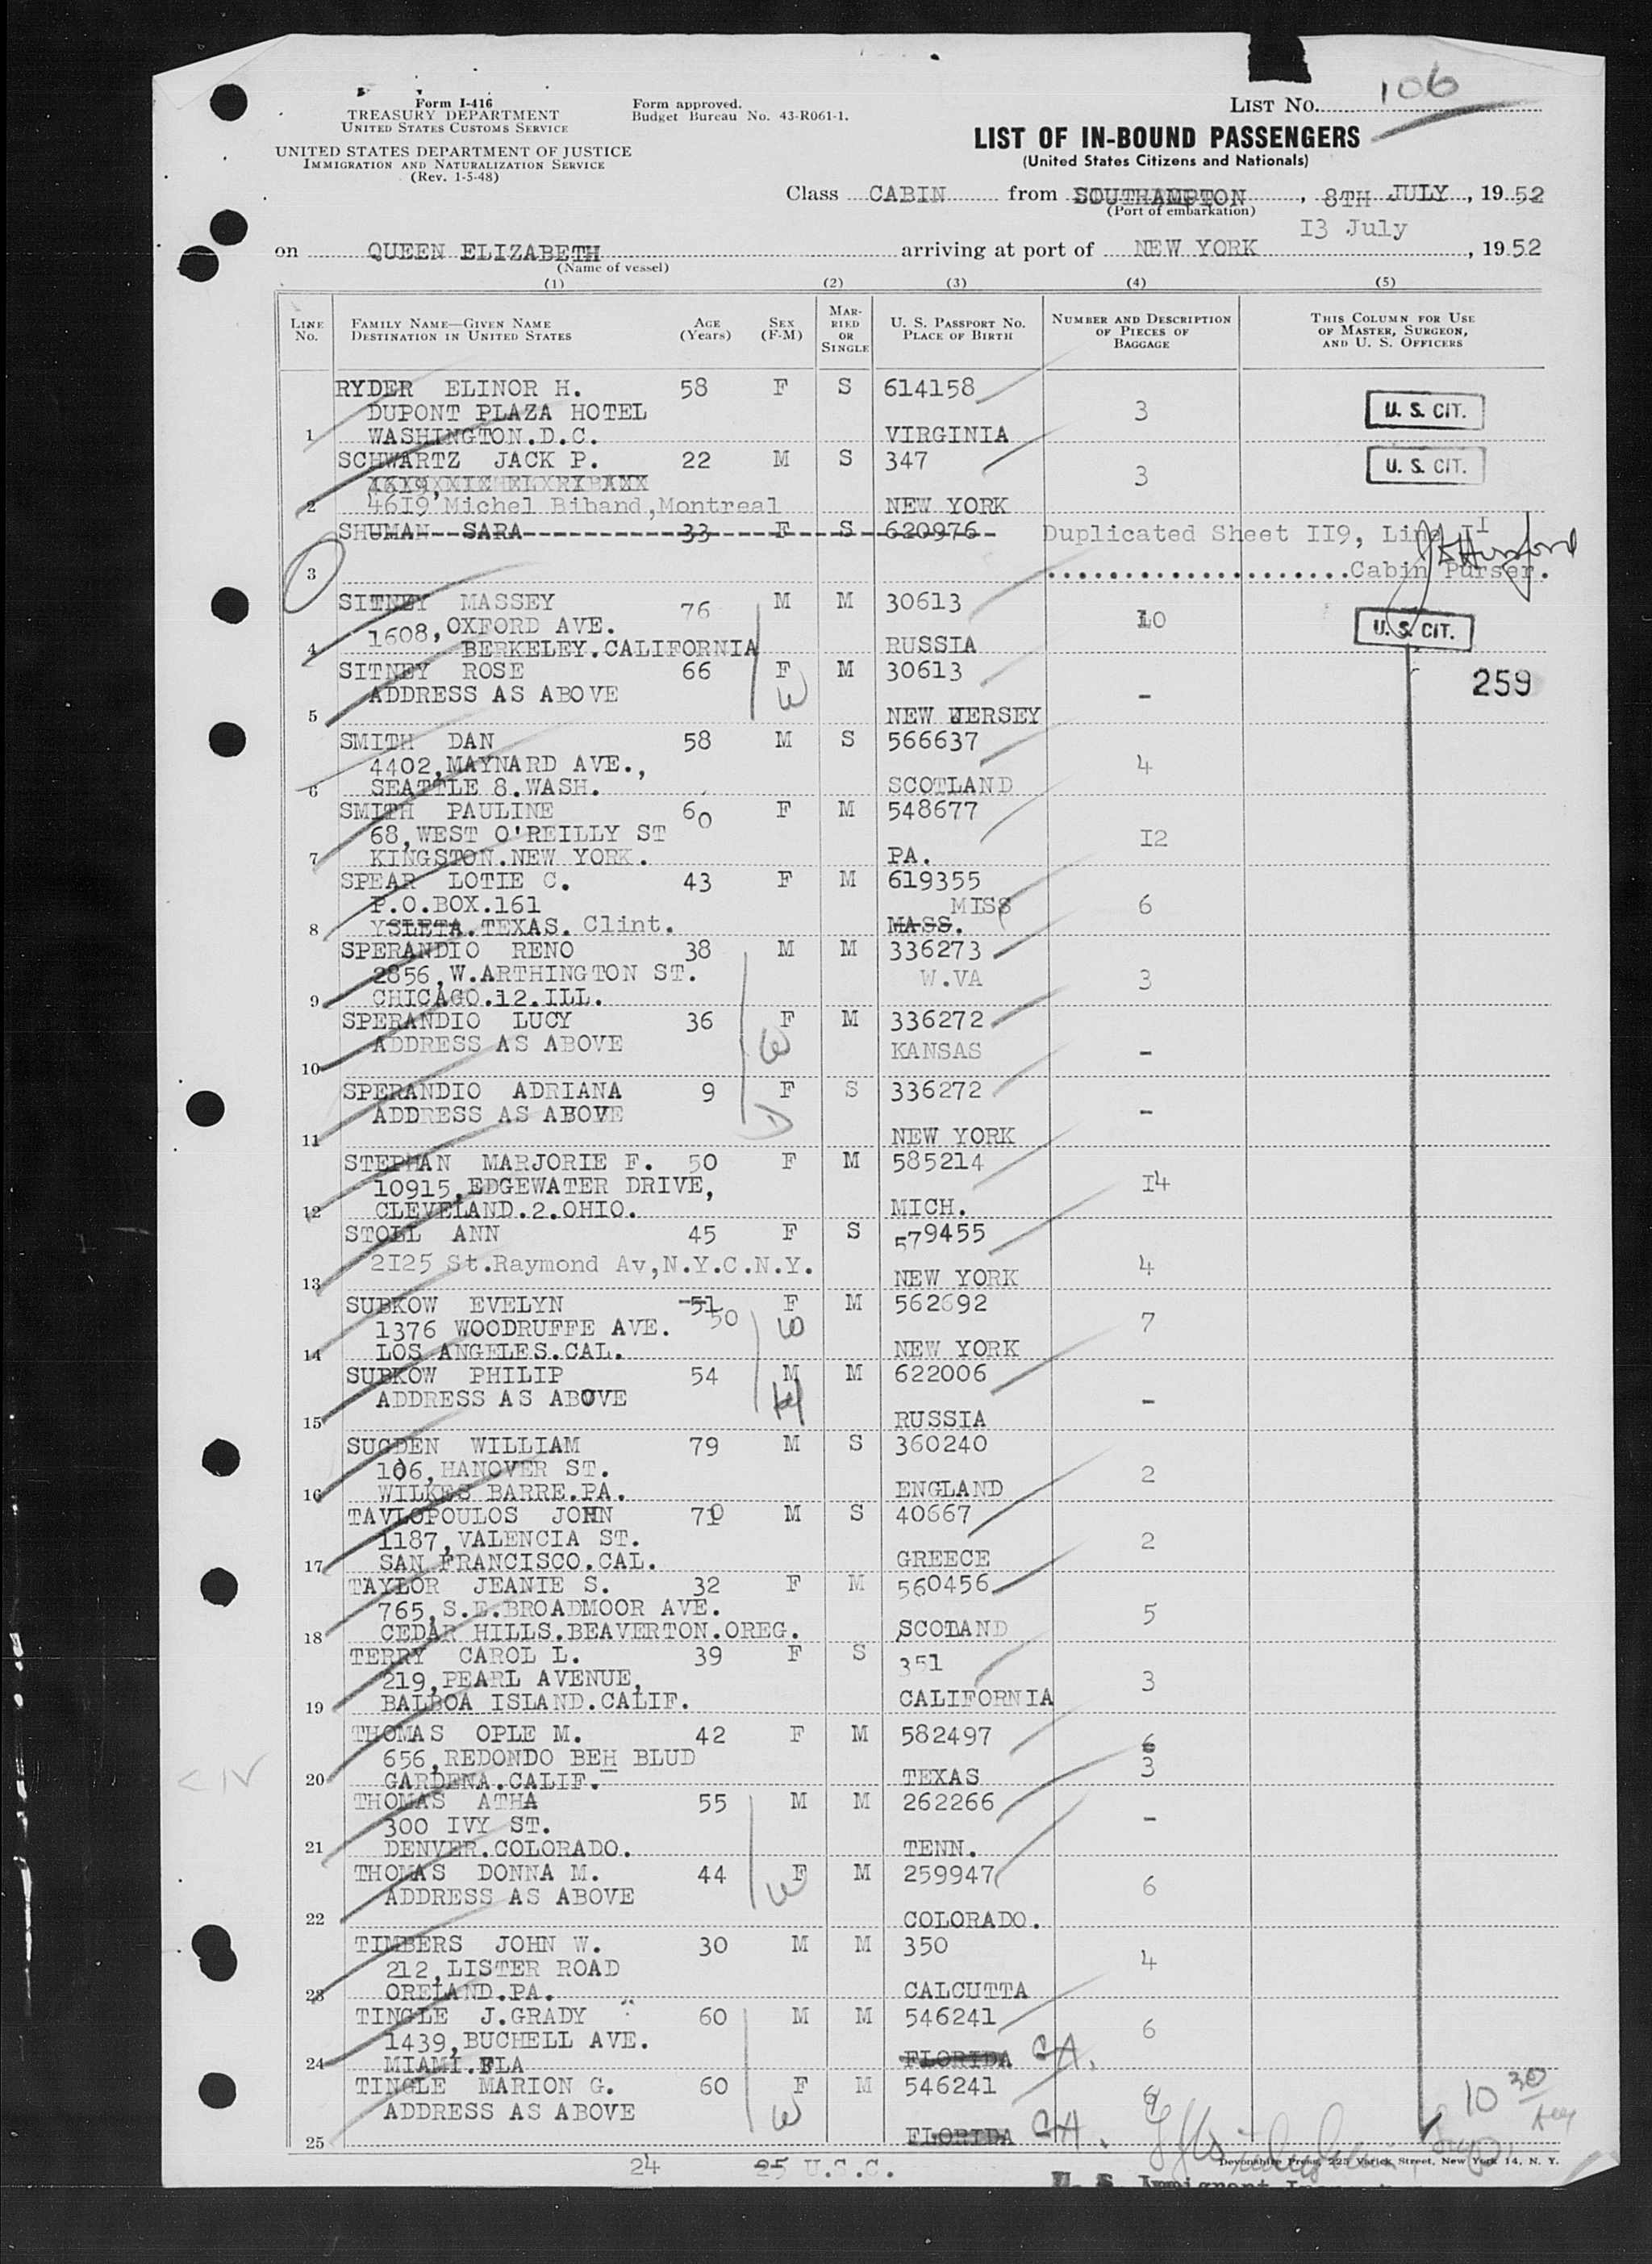 Form I-416
TREASURY DEPARTMENT
UNITED STATES CUSTOMS SERVICE
UNITED STATES DEPARTMENT OF JUSTICE
IMMIGRATION AND NATURALIZATION SERVICE
(Rev. 1-5-48)
Form approved.
Budget Bureau No. 43-R061-1.
LIST No. 106
LIST OF IN-BOUND PASSENGERS
(United States Citizens and Nationals)
Class CABIN from SOUTHAMPTON, 8TH JULY, 1952
(Port of embarkation)
13 July
on QUEEN ELIZABETH arriving at port of NEW YORK, 1952
(Name of vessel)
(1) (2) (3) (4) (5)
LINE No. FAMILY NAME—GIVEN NAME DESTINATION IN UNITED STATES AGE (Years) SEX (F-M) MARRIED OR SINGLE U. S. PASSPORT No. PLACE OF BIRTH NUMBER AND DESCRIPTION OF PIECES OF BAGGAGE THIS COLUMN FOR USE OF MASTER, SURGEON, AND U. S. OFFICERS
RYDER ELINOR H. 58 F S 614158
DUPONT PLAZA HOTEL 3 U. S. CIT.
1 WASHINGTON.D.C. VIRGINIA
SCHWARTZ JACK P. 22 M S 347 U. S. CIT.
4619, 3
2 4619 Michel Biband,Montreal NEW YORK
SHUMAN SARA 33 F S 620976 Duplicated Sheet II9, Line II
3 Cabin Purser.
SITNEY MASSEY 76 M M 30613
1608,OXFORD AVE. 10 U. S. CIT.
4 BERKELEY.CALIFORNIA RUSSIA
SITNEY ROSE 66 F M 30613 259
ADDRESS AS ABOVE W -
5 NEW JERSEY
SMITH DAN 58 M S 566637
4402,MAYNARD AVE., 4
6 SEATTLE 8.WASH. SCOTLAND
SMITH PAULINE 60 F M 548677
68,WEST O'REILLY ST I2
7 KINGSTON.NEW YORK. PA.
SPEAR LOTIE C. 43 F M 619355
P.O.BOX.161 MISS 6
8 YSLETA.TEXAS. Clint. MASS.
SPERANDIO RENO 38 M M 336273
2856,W.ARTHINGTON ST. W.VA 3
9 CHICAGO.12.ILL.
SPERANDIO LUCY 36 F M 336272
ADDRESS AS ABOVE W KANSAS -
10
SPERANDIO ADRIANA 9 F S 336272
ADDRESS AS ABOVE D -
11 NEW YORK
STEPHAN MARJORIE F. 50 F M 585214
10915,EDGEWATER DRIVE, I4
12 CLEVELAND.2.OHIO. MICH.
STOLL ANN 45 F S 579455
2I25 St.Raymond Av,N.Y.C.N.Y. 4
13 NEW YORK
SUBKOW EVELYN 51 50 F M 562692
1376 WOODRUFFE AVE. W 7
14 LOS ANGELES.CAL. NEW YORK
SUBKOW PHILIP 54 M M 622006
ADDRESS AS ABOVE H -
15 RUSSIA
SUGDEN WILLIAM 79 M S 360240
106,HANOVER ST. 2
16 WILKES BARRE.PA. ENGLAND
TAVLOPOULOS JOHN 70 M S 40667
1187,VALENCIA ST. 2
17 SAN FRANCISCO.CAL. GREECE
TAYLOR JEANIE S. 32 F M 560456
765,S.E.BROADMOOR AVE. 5
18 CEDAR HILLS.BEAVERTON.OREG. SCOTAND
TERRY CAROL L. 39 F S 351
219,PEARL AVENUE, 3
19 BALBOA ISLAND.CALIF. CALIFORNIA
THOMAS OPLE M. 42 F M 582497 6
656,REDONDO BEH BLUD 3
20 GARDENA.CALIF. TEXAS
THOMAS ATHA 55 M M 262266
300 IVY ST. -
21 DENVER.COLORADO. TENN.
THOMAS DONNA M. 44 F M 259947
ADDRESS AS ABOVE W 6
22 COLORADO.
TIMBERS JOHN W. 30 M M 350
212,LISTER ROAD 4
23 ORELAND.PA. CALCUTTA
TINGLE J.GRADY 60 M M 546241
1439,BUCHELL AVE. 6
24 MIAMI.FLA FLORIDA GA.
TINGLE MARION G. 60 F M 546241 10 30
ADDRESS AS ABOVE W 6
25 FLORIDA GA.
24 25 U.S.C. Devonshire Press, 225 Varick Street, New York 14, N. Y.
U. S. Immigrant